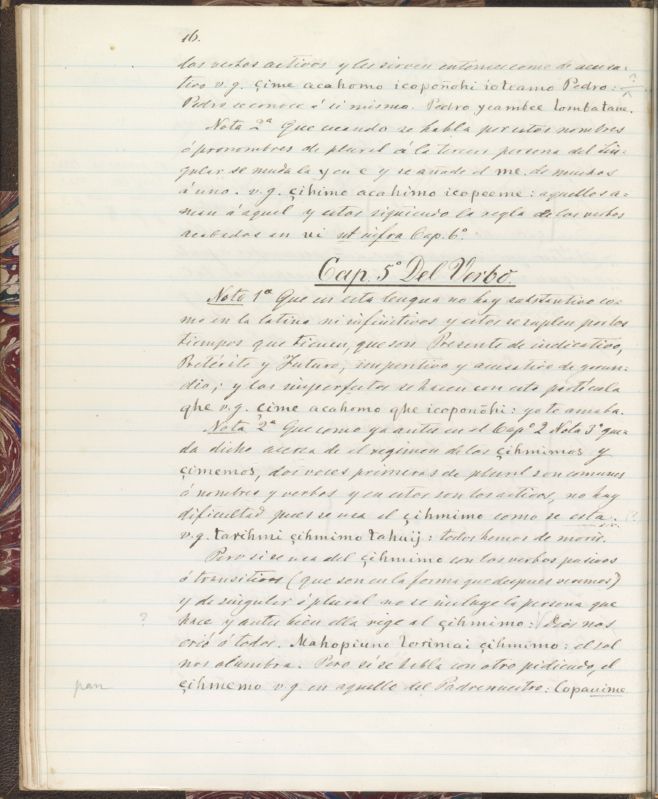 16.
los verbos activos y les sirven entonces como de acusa-
tivo v.g. çime acahomo icopoñohi ioteamo Pedro: ?
Pedro se conoce á si mismo. Pedro ycambee tombatave.
Nota 2ª Que cuando se habla por estos nombres
ó pronombres de plural á la tercera persona del Sin-
gular se muda la y en e y se añade el me. de muchos
á uno. v.g. çihimo acahimo icopeeme: aquellos a-
man á aquel y estos siguiendo la regla de los verbos
acabados en vi ut infra Cap. 6º.
Cap. 5º Del Verbo.
Nota 1ª Que en esta lengua no hay substantivo co-
mo en la latina ni infinitivos y estos se suplen por los
tiempos que tienen, que son Presente de indicativo,
Pretérito y Futuro, imperativo y acusativo de gerun-
dio; y los imperfectos se hacen con esta partícula
qhe v.g. çime acahomo qhe icopoñohi: yo te amaba.
Nota 2ª Que como ya antes en el Capº 2 Nota 3ª que-
da dicho acerca de el regimen de los çihmimos y
çimemos, dos voces primeras de plural son comunes
á nombres y verbos y en estos son los activos, no hay
dificultad pues se usa el çihmimo como se esta.
v.g. tarihmi çihmimo tahuij: todos hemos de morir.
Pero si se usa del çihmimo con los verbos pasivos
ó transitivos (que son en la forma que despues veremos)
y de singular á plural no se incluye la persona que
hace y antes bien ella rige al çihmimo: Dios nos
crió á todos. Mahopiuno torimai çihmimo: el sol
nos alumbra. Pero si se habla con otro pidiendo, el
çihmemo v.g. en aquello del Padrenuestro: Copauime
?
pan